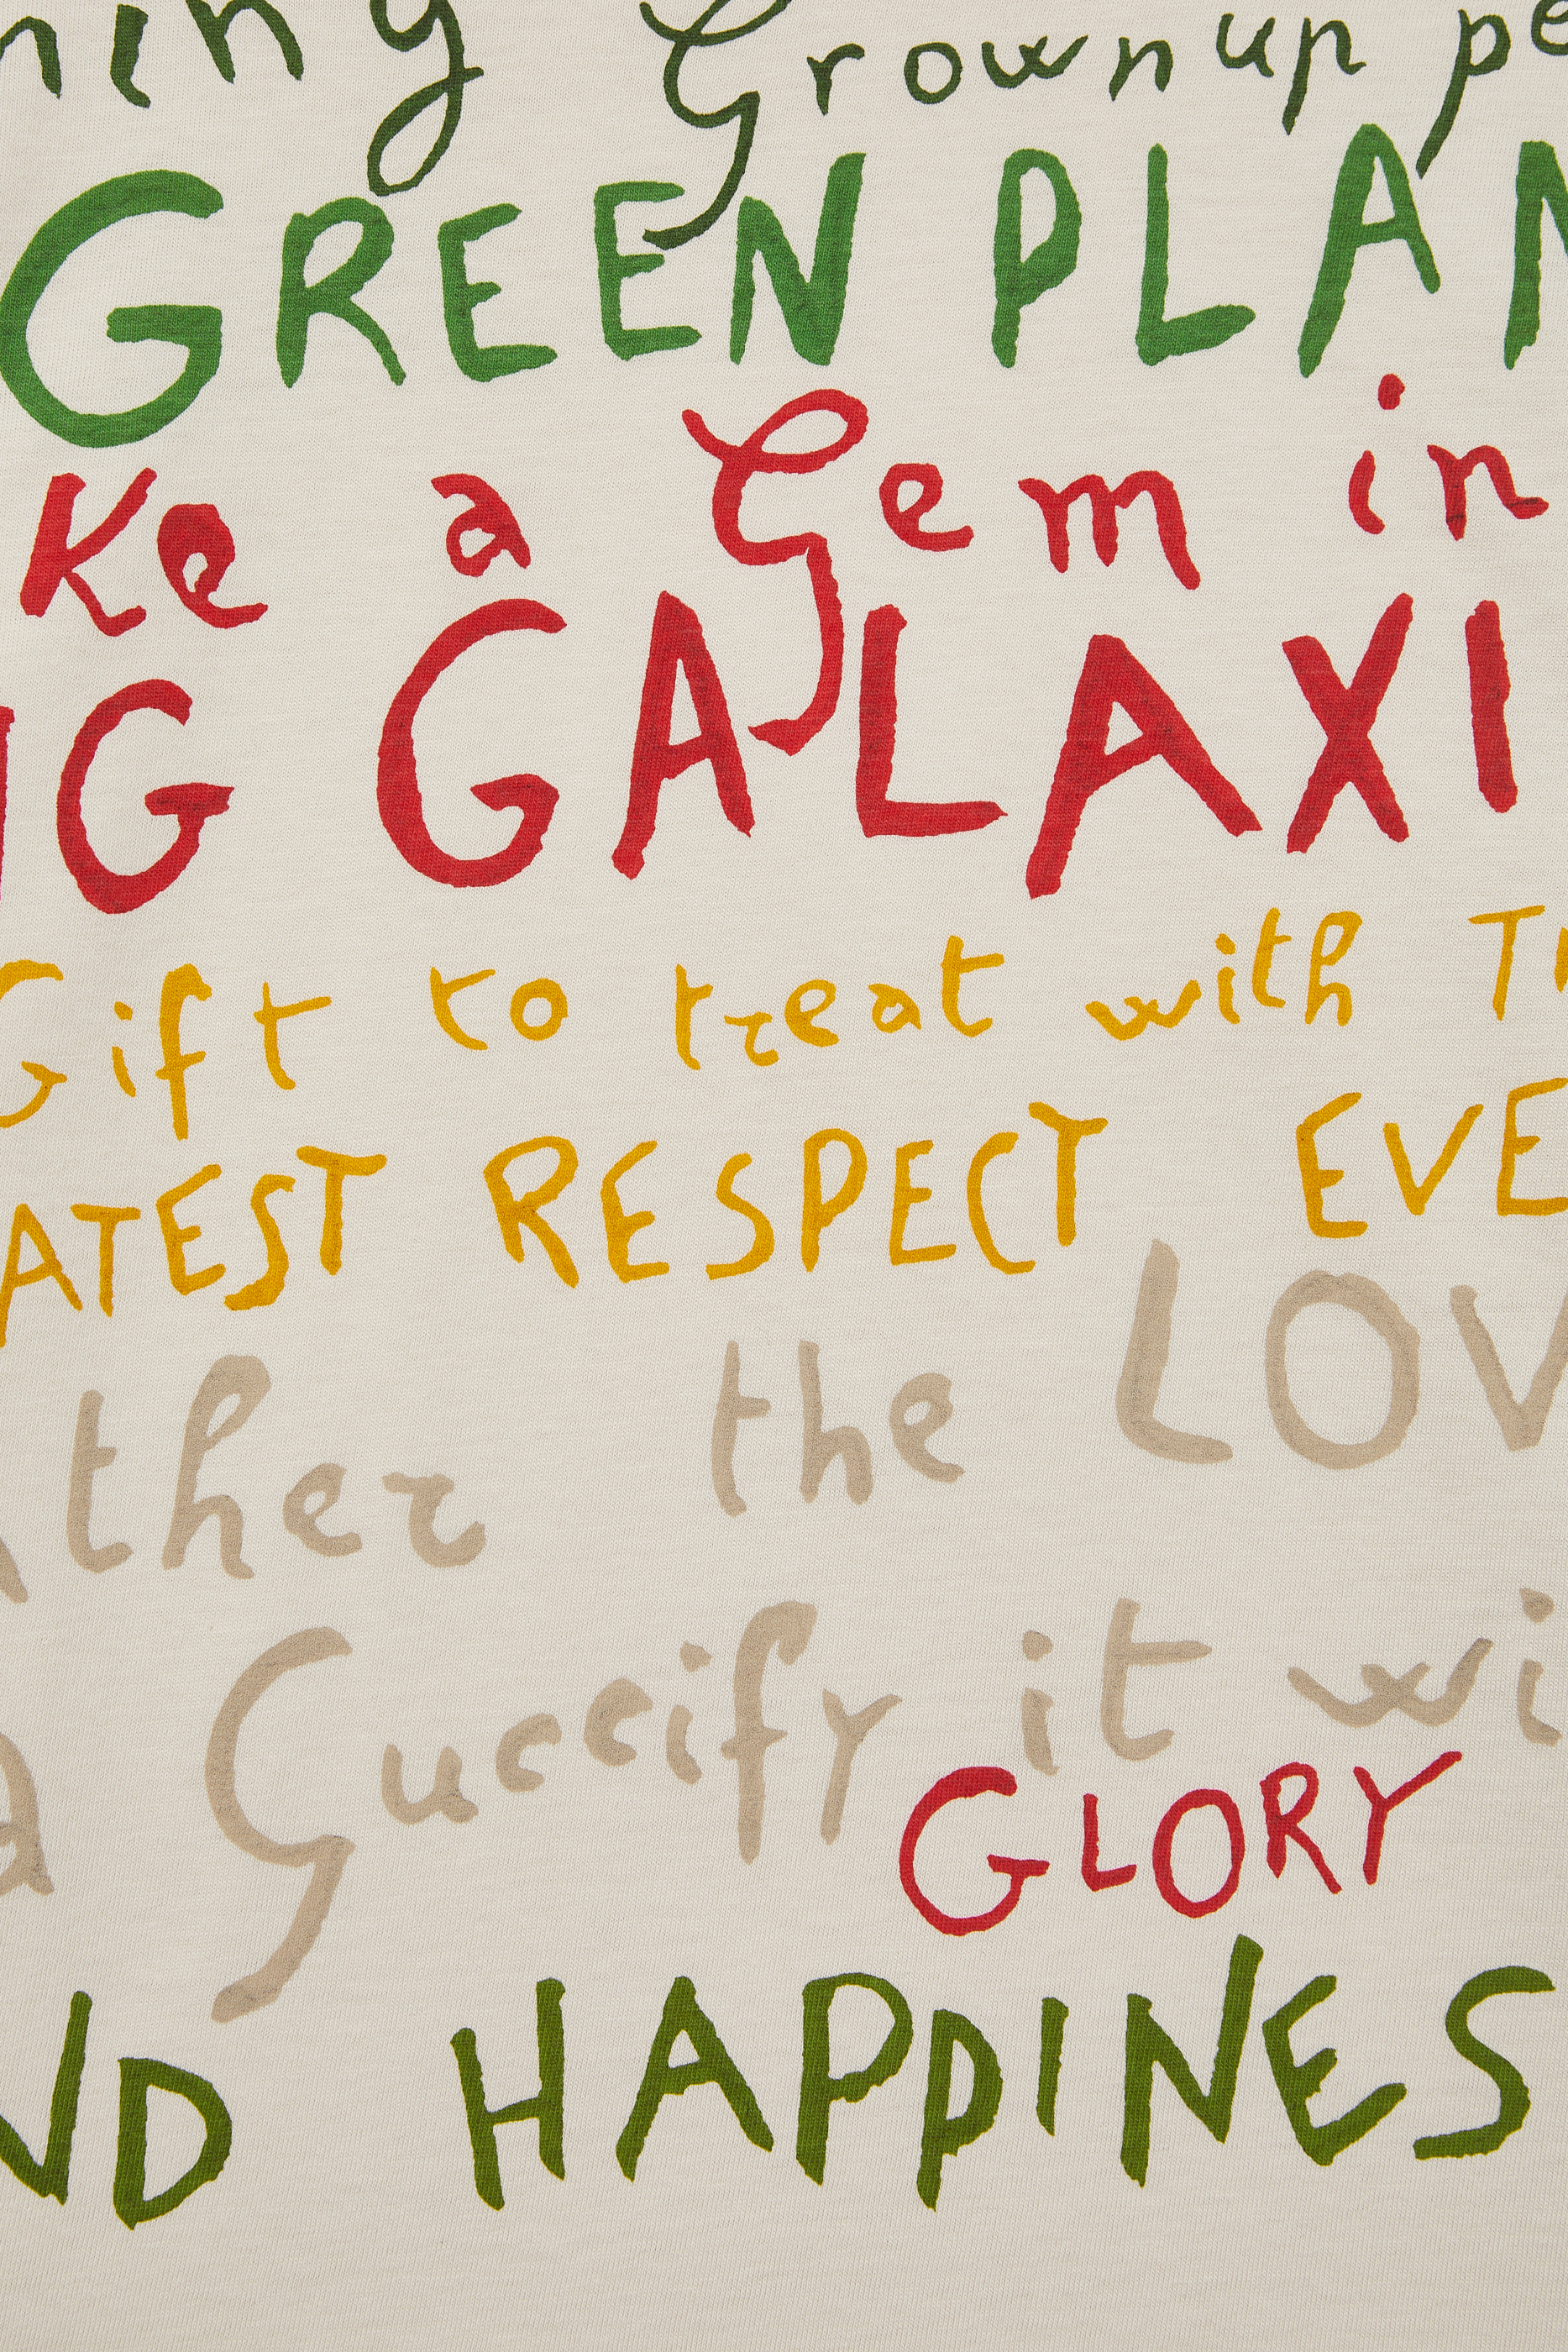 ning Grownup pe
GREEN PLAN
Ke a Gem in
NG GALAXI
Gift to treat with Th
ATEST RESPECT EVE
ther the LOV
a Guccify it wi
GLORY
ND HAPPINES